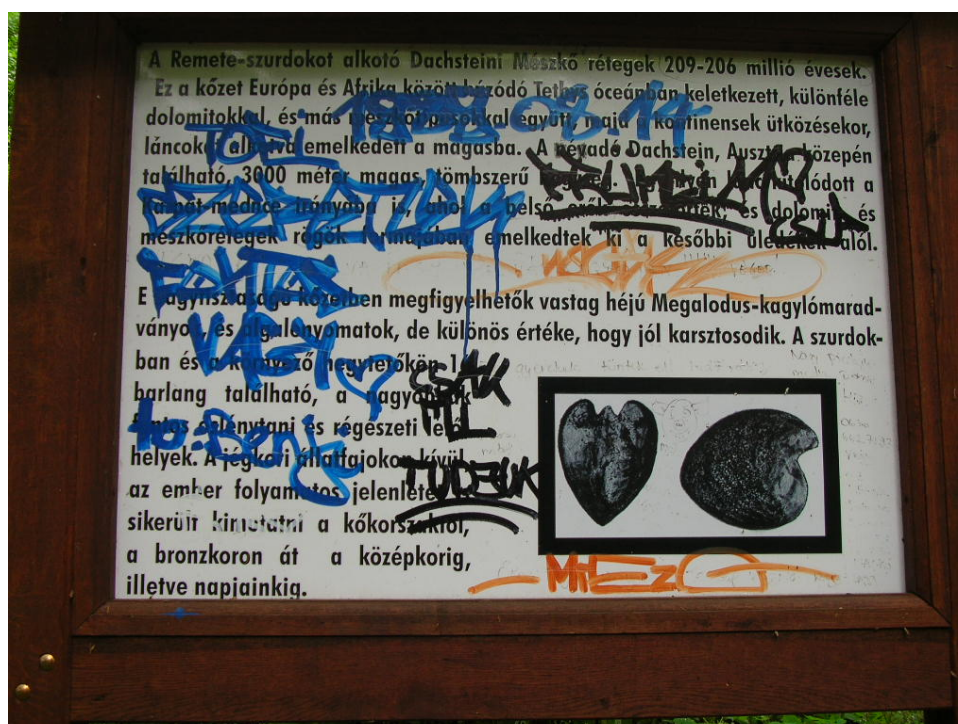 A Remete-szurdokot alkotó Dachsteini Mészkő rétegek 209-206 millió évesek.
Ez a kőzet Európa és Afrika között húzódó Tethys óceánban keletkezett, különféle
dolomitokkal, és más mészkőtípusokkal együtt, majd a kontinensek ütközésekor,
láncokat alkotva emelkedett a magasba. A névadó Dachstein, Ausztria közepén
található, 3000 méter magas, tömbszerű hegység. tolódott a
Kárpát-medence irányába is, ahol a belső és dolomit és
mészkőrétegek rögök formájában emelkedtek ki a későbbi üledékek alól.
E nagytisztaságú kőzetben megfigyelhetők vastag héjú Megalodus-kagylómarad-
ványok, és algalenyomatok, de különös értéke, hogy jól karsztosodik. A szurdok-
ban és a környező hegytetőkön
barlang található, a nagyobbak
fontos őslénytani és régészeti lelő-
helyek. A jégkori állatfajokon kívül
az ember folyamatos jelenlétét
sikerült kimutatni a kőkorszaktól,
a bronzkoron át a középkorig,
illetve napjainkig.
TOFI
1998 08. 14
FONTOS
VAGY
to: Beni
CSAK
MI
TUDJUK
CSUP